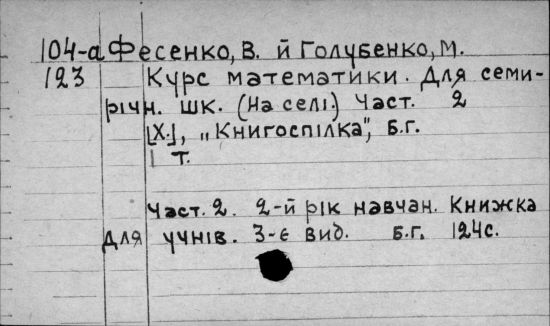 104-а Фесенко, В. й Голубенко, М.
123 Курс математики. Для семи-
річн. шк. (На селі.) Част. 2
[Х.], „Книгоспілка", б.г.
| т.
Част. 2. 2-й рік навчан. Книжка
для учнів. 3-є вид. б.г. 124с.